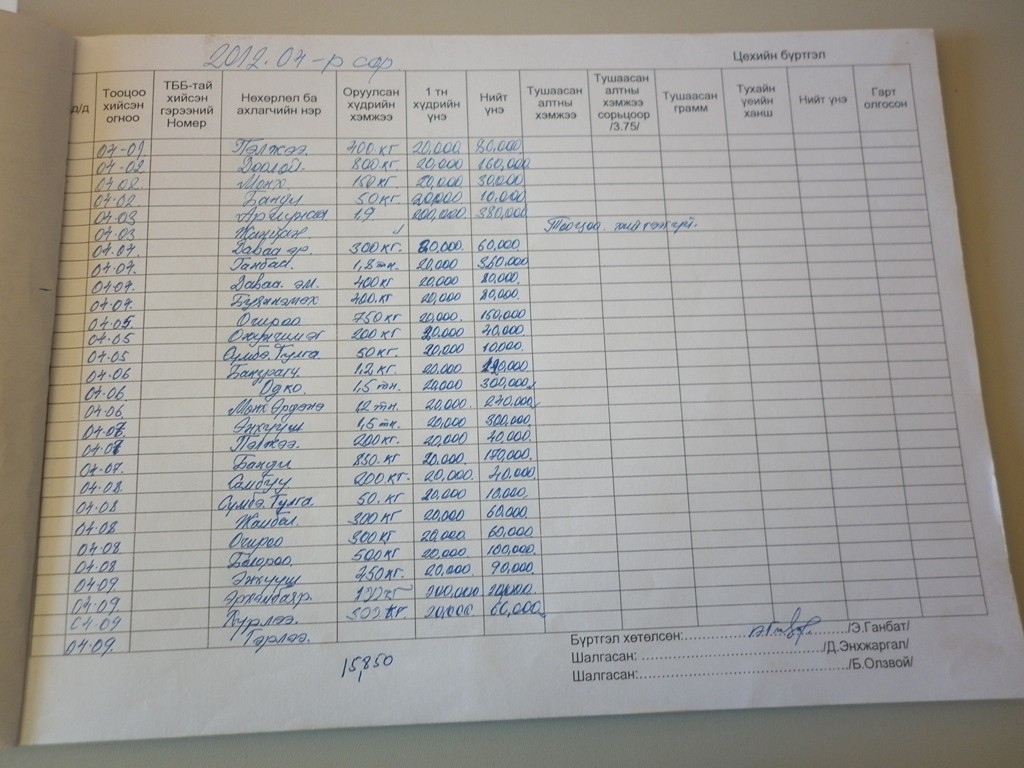 2012.04-р сар
Цехийн бүртгэл
д/д Тооцоо хийсэн огноо ТББ-тай хийсэн гэрээний Номер Нөхөрлөл ба ахлагчийн нэр Оруулсан хүдрийн хэмжээ 1 тн хүдрийн үнэ Нийт үнэ Тушаасан алтны хэмжээ Тушаасан алтны хэмжээ сорьцоор /3.75/ Тушаасан грамм Тухайн үеийн ханш Нийт үнэ Гарт олгосон
04-01 Пэлжээ. 400 кг 20,000 80,000
04-02 Доолой. 800 кг 20,000 160,000
04.02. Мөнх 150 кг. 20,000 30,000
04.02 Банди 50 кг. 20,000 10,000
04-03 1,9 200,000 380,000
04.03 Тооцоо хийгээгүй.
04.04 Даваа эр. 300 кг. 20,000. 60,000
04.04. Ганбат. 1,8 тн. 20,000 360,000
04.04. Даваа. эм. 400 кг 20,000 80,000
04.04. Буяннэмэх 400. кг 20,000 80,000.
04.05. Очироо 750 кг 20,000 150,000
04.05 200 кг 20,000. 40,000
04.05 Сүмбэ. Тулга 50 кг. 20,000 10,000.
04.06 1,2 кг. 20,000.
04.06. Одко. 1,5 тн. 20,000 300,000
04.06 Мөнх Эрдэнэ 12 тн. 20,000. 240,000
04.07 Энхүүш 1,5 тн. 20,000 300,000
04.07 Пэлжээ. 200 кг. 20,000 40,000
04.07. Банди 850 кг. 20,000. 170,000
04.08 Самбуу 200 кг. 20,000. 40,000
04.08 Сүмбэ. Тулга. 50. кг 20,000 10,000.
04.08 Жамбал. 300 кг 20,000 60,000
04.08 Очироо 300 кг 20,000. 60,000.
04.08 Баороо. 500 кг 20,000. 100,000.
04.09 Энхүүш 450 кг. 20,000. 90,000
04.09. Эрхэмбаяр. 200,000
04.09 Хүрлээ. 300 кг. 20,000 60,000
04.09. Гэрлээ.
15,850
Бүртгэл хөтөлсөн: /Э.Ганбат/
Шалгасан: /Д.Энхжаргал/
Шалгасан: /Б.Олзвой/